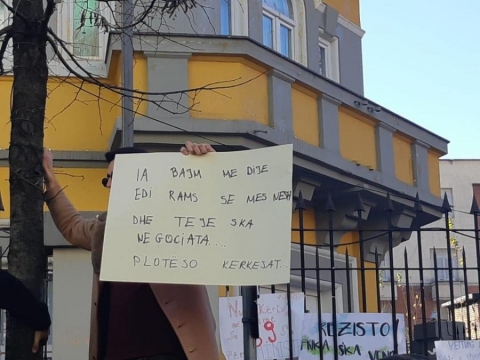 IA BAJM ME DIJE
EDI RAMS SE MES NESH
DHE TEJE SKA
NEGOCIATA...
PLOTËSO KËRKESAT...
REZISTO
SKA
9